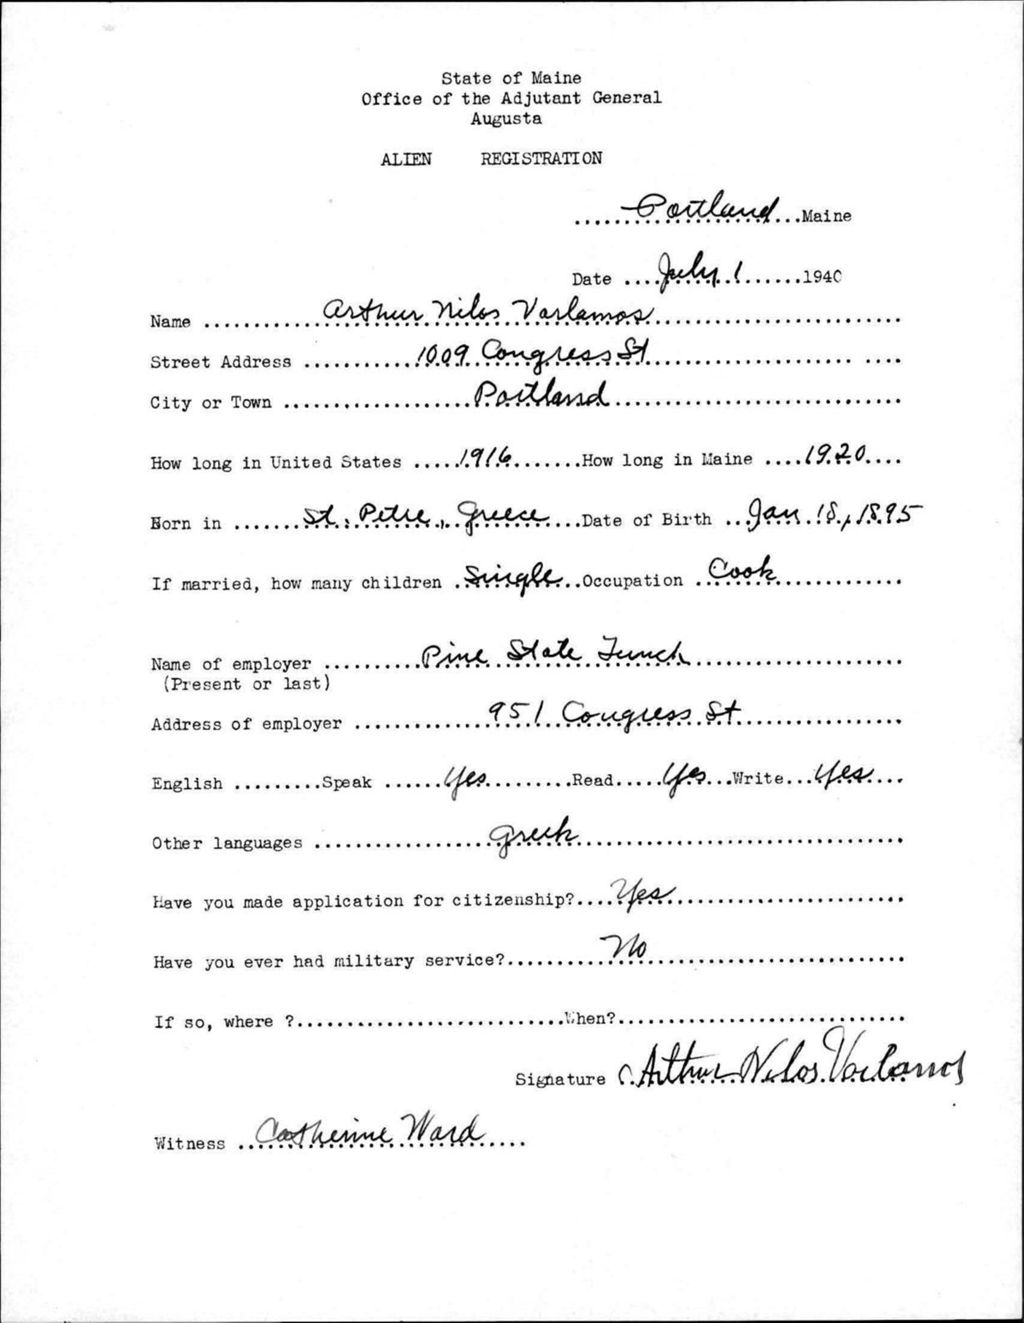 State of Maine
Office of the Adjutant General
Augusta
ALIEN REGISTRATION
Portland Maine
Date July 1 1940
Name Arthur Nilos Varlamos
Street Address 1009 Congress St
City or Town Portland
How long in United States 1916 How long in Maine 1920
Born in St. Petre, Greece Date of Birth Jan. 18, 1895
If married, how many children Single Occupation Cook
Name of employer Pine State Lunch
(Present or last)
Address of employer 951 Congress St
English Speak Yes Read Yes Write Yes
Other languages Greek
Have you made application for citizenship? Yes
Have you ever had military service? No
If so, where ? When?
Signature Arthur Nilos Varlamos
Witness Catherine Ward